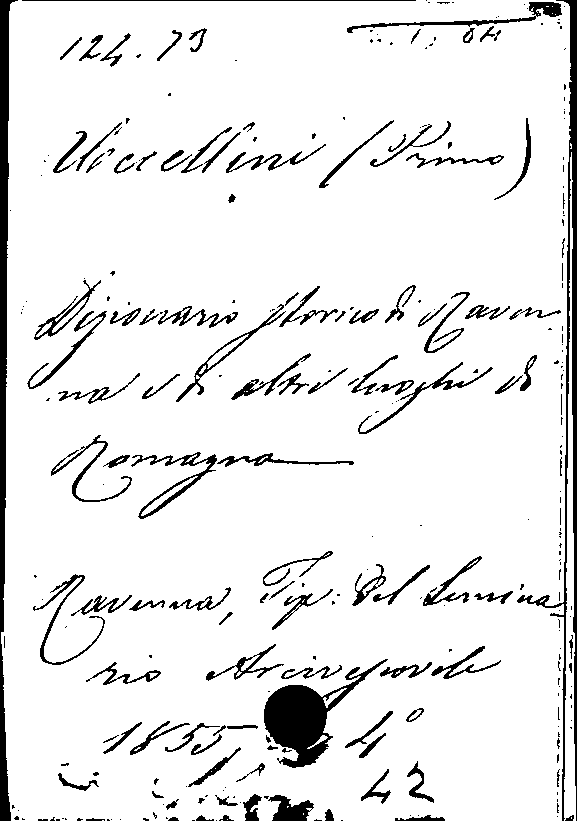 124.73
Uccellini (Primo)
Dizionario storico di Raven-
na e di altri luoghi di
Romagna
Ravenna, Tip: del Semina-
rio Arcivescovile
1855, 4°
42